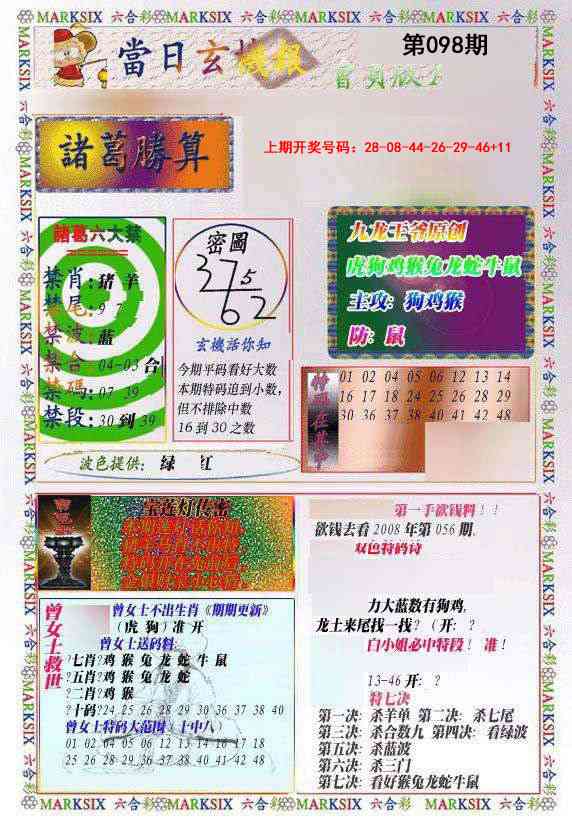 MARKSIX 六合彩 MARKSIX 六合彩 MARKSIX 六合彩 MARKSIX 六合彩
當日玄機報
第098期
諸葛勝算
上期开奖号码：28-08-44-26-29-46+11
諸葛六大禁
禁肖：猪 羊
禁尾：9 7
禁波：藍
禁合：04-03 合
禁碼：07 39
禁段：30 到 39
密圖
37 5
62
玄機話你知
今期平码看好大数
本期特码追到小数，
但不排除中数
16 到 30 之数
九龙王爷原创
虎狗鸡猴兔龙蛇牛鼠
主攻：狗鸡猴
防：鼠
01 02 04 05 06 12 13 14
16 17 18 24 25 26 28 29
30 36 37 38 40 41 42 48
波色提供：绿 红
宝莲灯传密
第一手欲钱料！！
欲钱去看 2008 年第 056 期.
双色特码诗
力大蓝数有狗鸡,
龙土来尾找一找？（开：？
白小姐必中特段！ 准！
13-46 开：？
特七决
第一决：杀羊单 第二决：杀七尾
第三决：杀合数九 第四决：看绿波
第五决：杀蓝波
第六决：杀三门
第七决：看好猴兔龙蛇牛鼠
曾女士救世
曾女士不出生肖《期期更新》
（虎 狗）准 开
曾女士送码料:
?七肖?鸡 猴 兔 龙 蛇 牛 鼠
?五肖?鸡 猴 兔 龙 蛇
?二肖?鸡 猴
?十码?24 25 26 28 29 30 36 37 38 40
曾女士特码大范围（十中八）
01 02 04 05 06 12 13 14 16 17 18
25 26 28 29 36 37 38 40 41 42 48
MARKSIX 六合彩 MARKSIX 六合彩 MARKSIX 六合彩 MARKSIX 六合彩